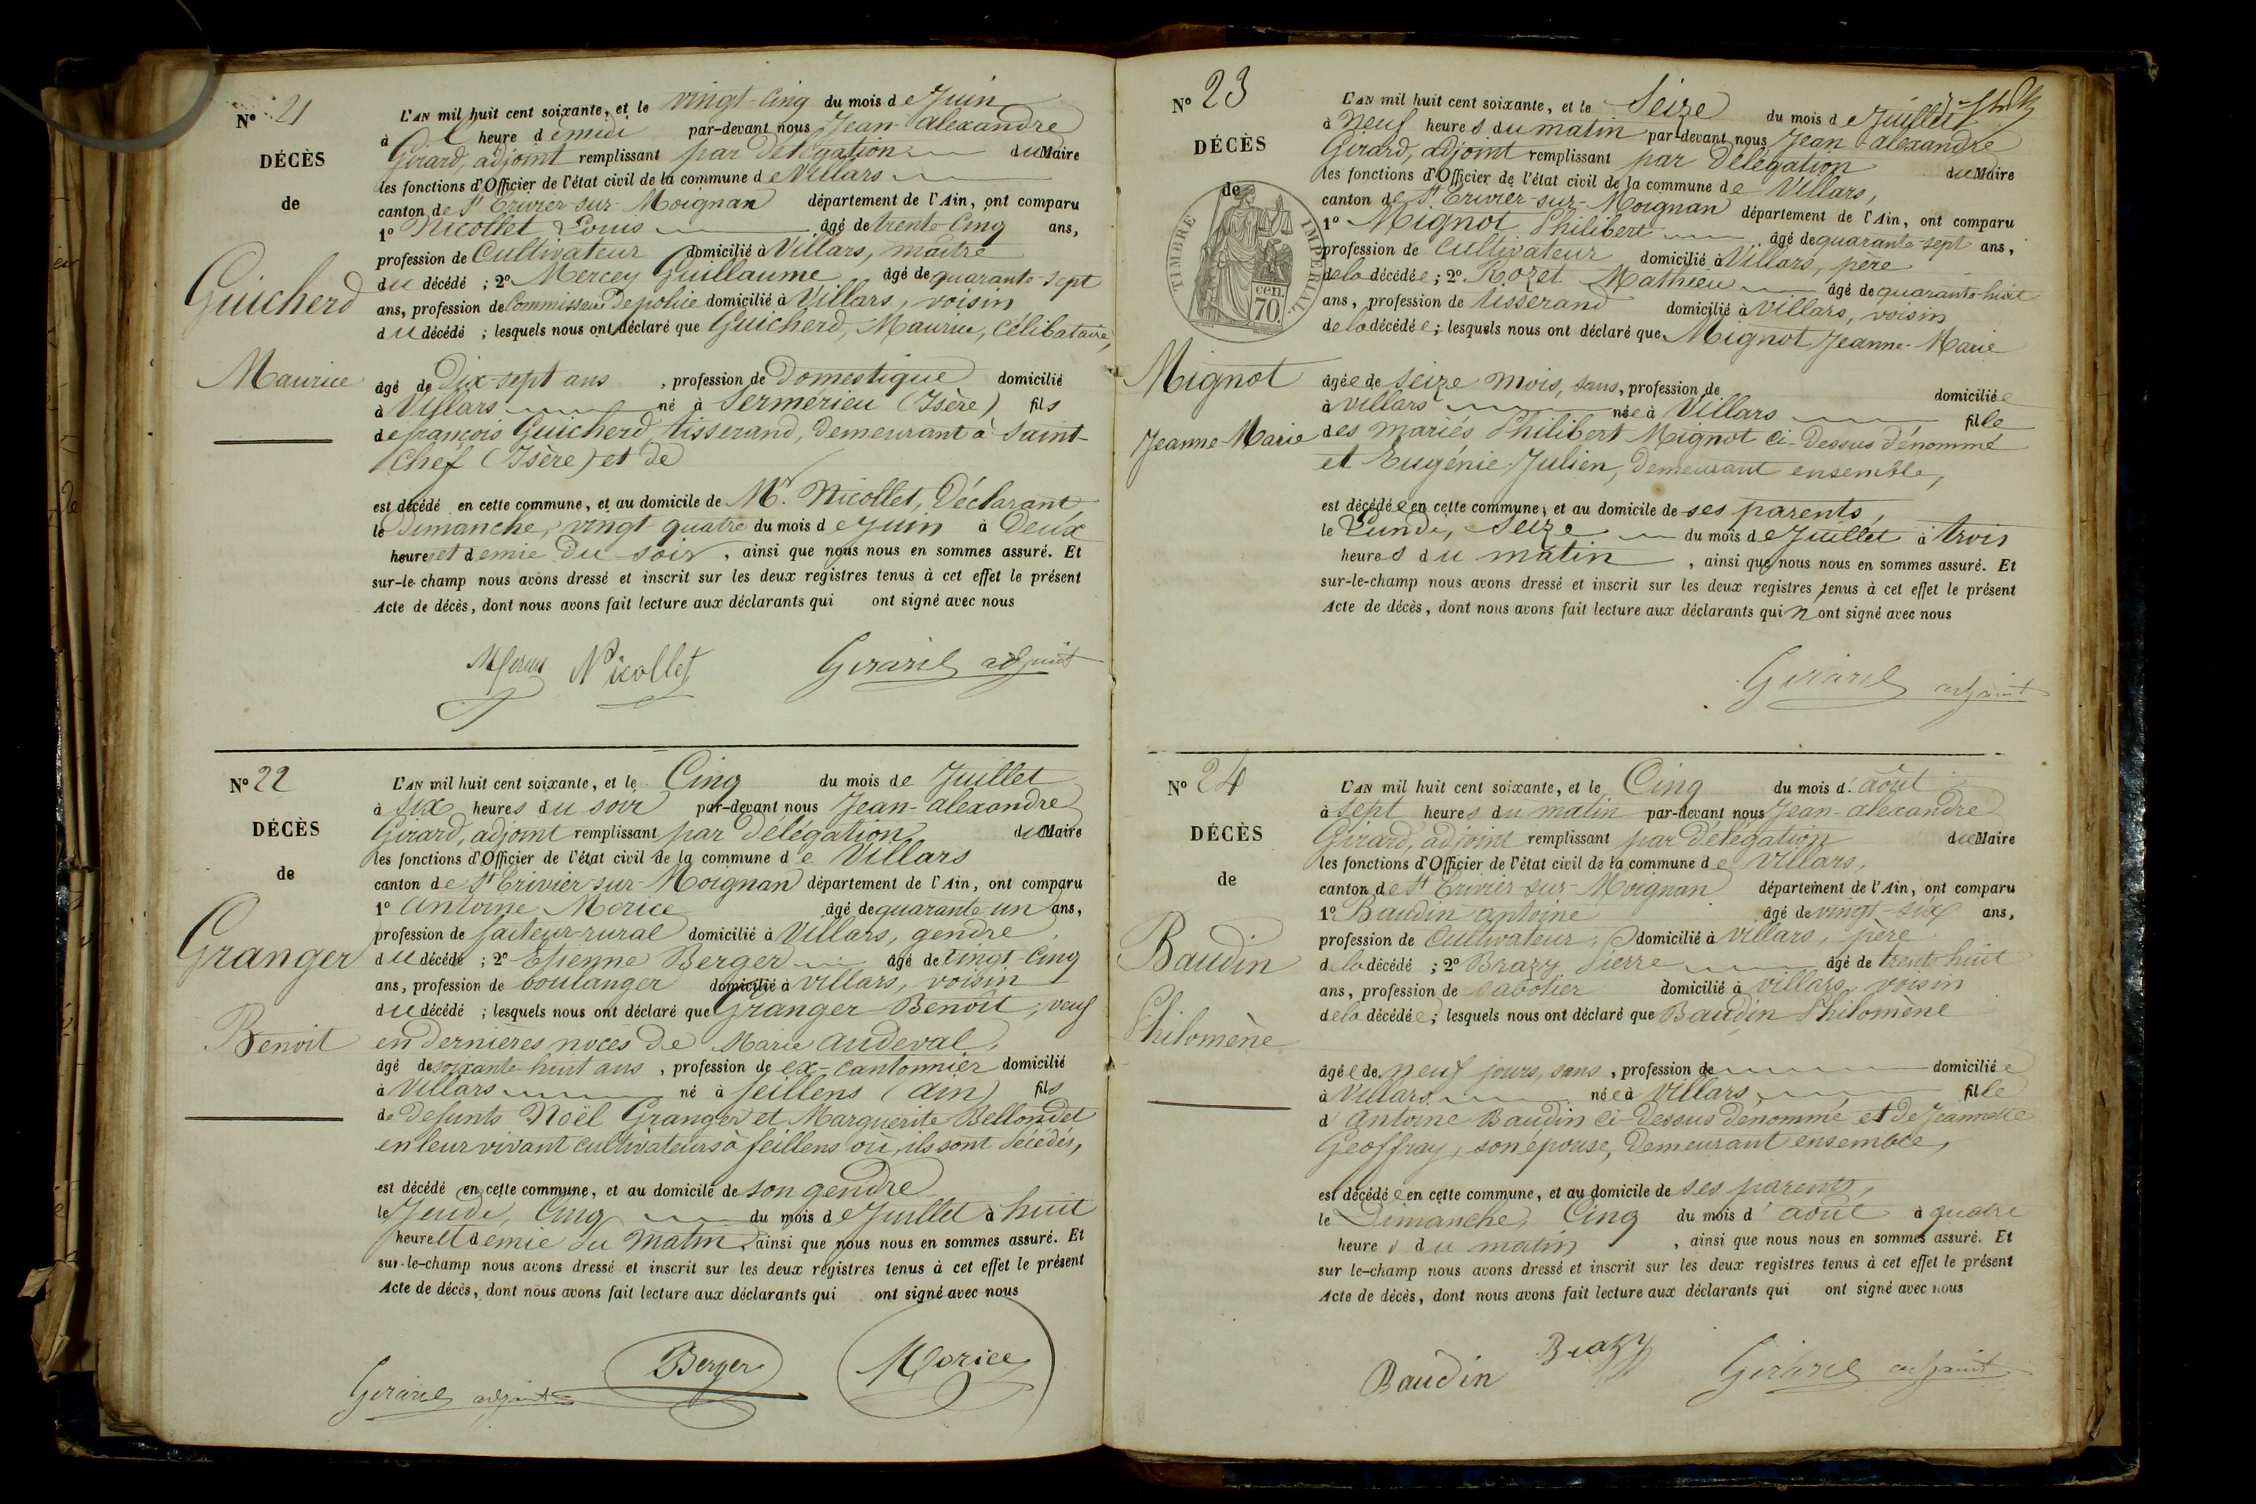 N° 21
DÉCÈS
de
Guicherd
Maurice
L'AN mil huit cent soixante, et le vingt-cinq du mois de Juin
à l heure de midi par-devant nous Jean-alexandre
Girard, adjoint remplissant par délégation du Maire
les fonctions d'Officier de l'état civil de la commune de Villars
canton de St Trivier-sur-Moignan département de l'Ain, ont comparu
1° Nicollet Louis âgé de trente-cinq ans,
profession de Cultivateur domicilié à Villars, maître
du décédé ; 2° Mercey Guillaume âgé de quarante-sept
ans, profession de Commissaire de police domicilié à Villars, voisin
du décédé ; lesquels nous ont déclaré que Guicherd, Maurice, célibataire,
âgé de Dix-sept ans , profession de Domestique domicilié
à Villars né à Sermérieu (Isère) fils
de françois Guicherd, tisserand, demeurant à Saint-
Chef (Isère) et de
est décédé en cette commune, et au domicile de Mr. Nicollet, Déclarant
le Dimanche, vingt quatre du mois de Juin à Deux
heures et demie du soir , ainsi que nous nous en sommes assuré. Et
sur-le-champ nous avons dressé et inscrit sur les deux registres tenus à cet effet le présent
Acte de décès, dont nous avons fait lecture aux déclarants qui ont signé avec nous
Nicollet Girard adjoint
N° 22
DÉCÈS
de
Granger
Benoit
L'AN mil huit cent soixante, et le Cinq du mois de Juillet
à six heures du soir par-devant nous Jean-alexandre
Girard, adjoint remplissant par délégation du Maire
les fonctions d'Officier de l'état civil de la commune de Villars
canton de St Trivier-sur-Moignan département de l'Ain, ont comparu
1° Antoine Morice âgé de quarante-un ans,
profession de facteur-rural domicilié à Villars, gendre
du décédé ; 2° Etienne Berger âgé de vingt-cinq
ans, profession de boulanger domicilié à villars, voisin
du décédé ; lesquels nous ont déclaré que Granger Benoit, veuf
en dernières noces de Marie Andeval,
âgé de soixante-huit ans , profession de ex-cantonnier domicilié
à Villars né à feillens (ain) fils
de defunts Noël Granger et Marguerite Bellondet
en leur vivant cultivateurs à feillens où, ils sont décédés,
est décédé en cette commune, et au domicile de son gendre
le Jeudi, Cinq du mois de Juillet à huit
heure et demie du matin, ainsi que nous nous en sommes assuré. Et
sur-le-champ nous avons dressé et inscrit sur les deux registres tenus à cet effet le présent
Acte de décès, dont nous avons fait lecture aux déclarants qui ont signé avec nous
Girard adjoint Berger Morice
N° 23
DÉCÈS
de
TIMBRE IMPÉRIAL
cen.
70
Mignot
Jeanne Marie
L'AN mil huit cent soixante, et le Seize du mois de Juillet
à Neuf heures du matin par-devant nous Jean-alexandre
Girard, adjoint remplissant par délégation du Maire
les fonctions d'Officier de l'état civil de la commune de Villars,
canton de St Trivier-sur-Moignan département de l'Ain, ont comparu
1° Mignot Philibert âgé de quarante-sept ans,
profession de Cultivateur domicilié à Villars, père
de la décédée ; 2° Rozet Mathieu âgé de quarante-huit
ans, profession de tisserand domicilié à Villars, voisin
de la décédée ; lesquels nous ont déclaré que Mignot Jeanne-Marie
âgée de seize mois, sans, profession de domiciliée
à villars née à Villars fille
des mariés Philibert Mignot ci-dessus dénommé
et Eugénie Julien, demeurant ensemble,
est décédée en cette commune, et au domicile de ses parents,
le Lundi, Seize du mois de Juillet à trois
heures du matin , ainsi que nous nous en sommes assuré. Et
sur-le-champ nous avons dressé et inscrit sur les deux registres tenus à cet effet le présent
Acte de décès, dont nous avons fait lecture aux déclarants qui n'ont signé avec nous
Girard adjoint
N° 24
DÉCÈS
de
Baudin
Philomène
L'AN mil huit cent soixante, et le Cinq du mois d'août
à sept heures du matin par-devant nous Jean-alexandre
Girard, adjoint remplissant par délégation du Maire
les fonctions d'Officier de l'état civil de la commune de Villars,
canton de St Trivier-sur-Moignan département de l'Ain, ont comparu
1° Baudin antoine âgé de vingt-six ans,
profession de Cultivateur, domicilié à villars, père
de la décédé ; 2° Brazy Pierre âgé de trente-huit
ans, profession de sabotier domicilié à villars, voisin
de la décédée ; lesquels nous ont déclaré que Baudin Philomène
âgée de neuf jours, sans , profession de domiciliée
à Villars, née à Villars, fille
d'Antoine Baudin ci-dessus dénommé et de Jeannette
Geoffray, son épouse, demeurant ensemble,
est décédée en cette commune, et au domicile de ses parents,
le Dimanche, Cinq du mois d'août à quatre
heures du matin , ainsi que nous nous en sommes assuré. Et
sur le-champ nous avons dressé et inscrit sur les deux registres tenus à cet effet le présent
Acte de décès, dont nous avons fait lecture aux déclarants qui ont signé avec nous
Baudin Brazy Girard adjoint